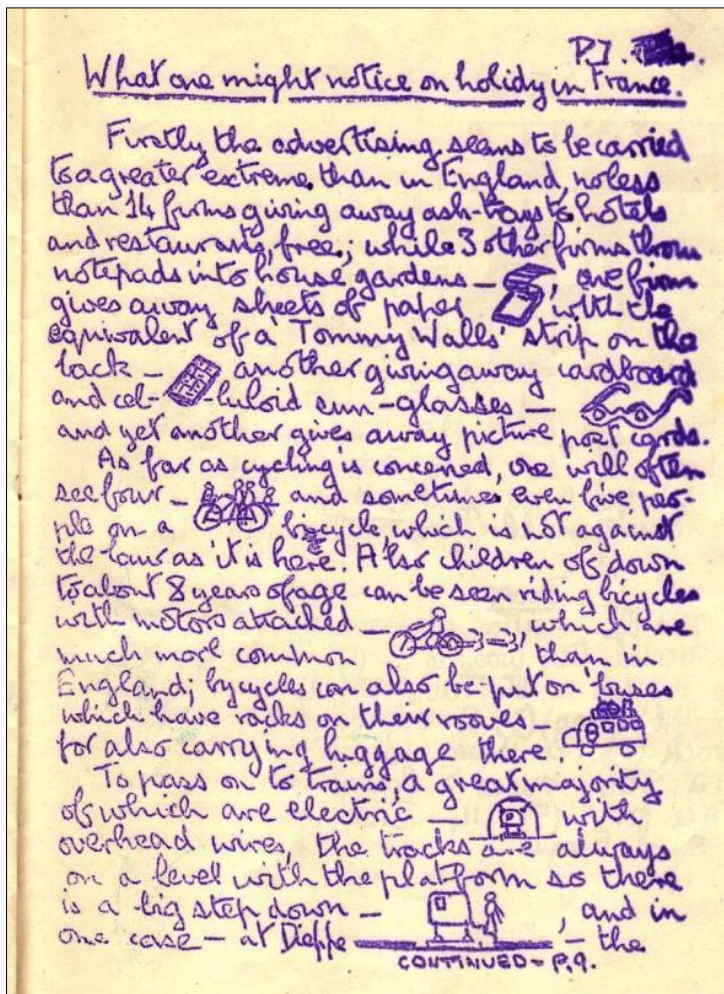 P7.
What one might notice on holidy in France.
Firstly the advertising seems to be carried
to a greater extreme than in England, no less
than 14 firms giving away ash-trays to hotels
and restaurants, free; while 3 other firms throw
notepads into house gardens — , one firm
gives away sheets of paper with the
equivalent of a 'Tommy Walls' strip on the
back — another giving away cardboard
and cel- -luloid sun-glasses —
and yet another gives away picture post cards.
As far as cycling is concerned, one will often
see four — and sometimes even five, peo-
ple on a bicycle, which is not against
the law as it is here. Also children of down
to about 8 years of age can be seen riding bicycles
with motors attached — , which are
much more common , than in
England; bycycles can also be put on buses
which have racks on their rooves
for also carrying luggage there.
To pass on to trains, a great majority
of which are electric — with
overhead wires, the tracks are always
on a level with the platform so there
is a big step down — , and in
one case — at Dieppe — the
CONTINUED - P.9.